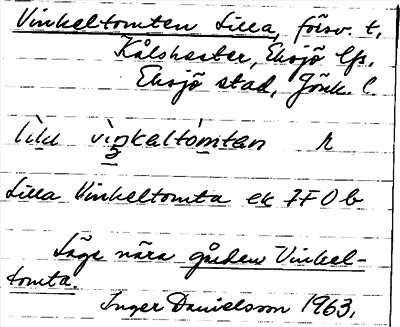 Vinkeltomten Lilla, försv. t.
Kålshester, Eksjö lfs.
Eksjö stad, Jönk. l.
lìlɩ vìŋkaltòmtan R
Lilla Vinkeltomta ek JFOb
Låge nära gården Vinkel-
tomta.
Inger Danielsson 1963.